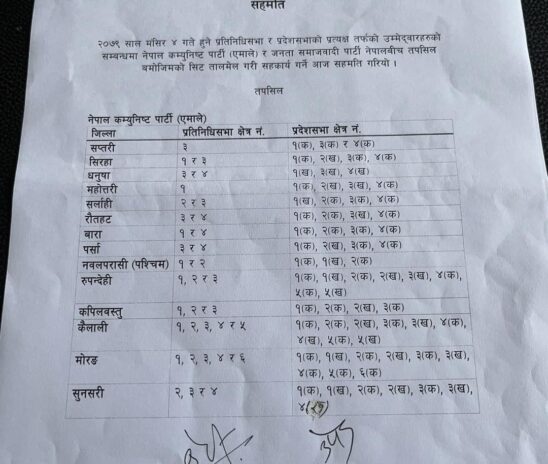 सहमति
२०७९ साल मंसिर ४ गते हुने प्रतिनिधिसभा र प्रदेशसभाको प्रत्यक्ष तर्फको उम्मेदवारहरुको
सम्बन्धमा नेपाल कम्युनिष्ट पार्टी (एमाले) र जनता समाजवादी पार्टी नेपालबीच तपसिल
बमोजिमको सिट तालमेल गरी सहकार्य गर्ने आज सहमति गरियो ।
तपसिल
नेपाल कम्युनिष्ट पार्टी (एमाले)
जिल्ला प्रतिनिधिसभा क्षेत्र नं. प्रदेशसभा क्षेत्र नं.
सप्तरी ३ १(क), ३(क) र ४(क)
सिरहा १ र ३ १(क), २(ख), ३(क), ४(क)
धनुषा ३ र ४ १(ख), ३(ख), ४(ख)
महोत्तरी १ १(क), २(ख), ३(ख), ४(क)
सर्लाही २ र ३ १(ख), २(क), ३(क), ४(क)
रौतहट ३ र ४ १(क), २(क), ३(ख), ४(क)
बारा १ र ४ १(क), २(क), ३(क), ४(क)
पर्सा ३ र ४ १(क), २(ख), ३(क), ४(क)
नवलपरासी (पश्चिम) १ र २ १(क), १(ख), २(क)
रुपन्देही १, २ र ३ १(क), १(ख), २(क), २(ख), ३(ख), ४(क),
५(क), ५(ख)
कपिलवस्तु १, २ र ३ १(क), २(क), २(ख), ३(क)
कैलाली १, २, ३, ४ र ५ १(क), २(क), २(ख), ३(क), ३(ख), ४(क),
४(ख), ५(क), ५(ख)
मोरङ १, २, ३, ४ र ६ १(क), १(ख), २(क), २(ख), ३(क), ३(ख),
४(क), ५(क), ६(क)
सुनसरी २, ३ र ४ १(क), १(ख), २(क), २(ख), ३(क), ३(ख),